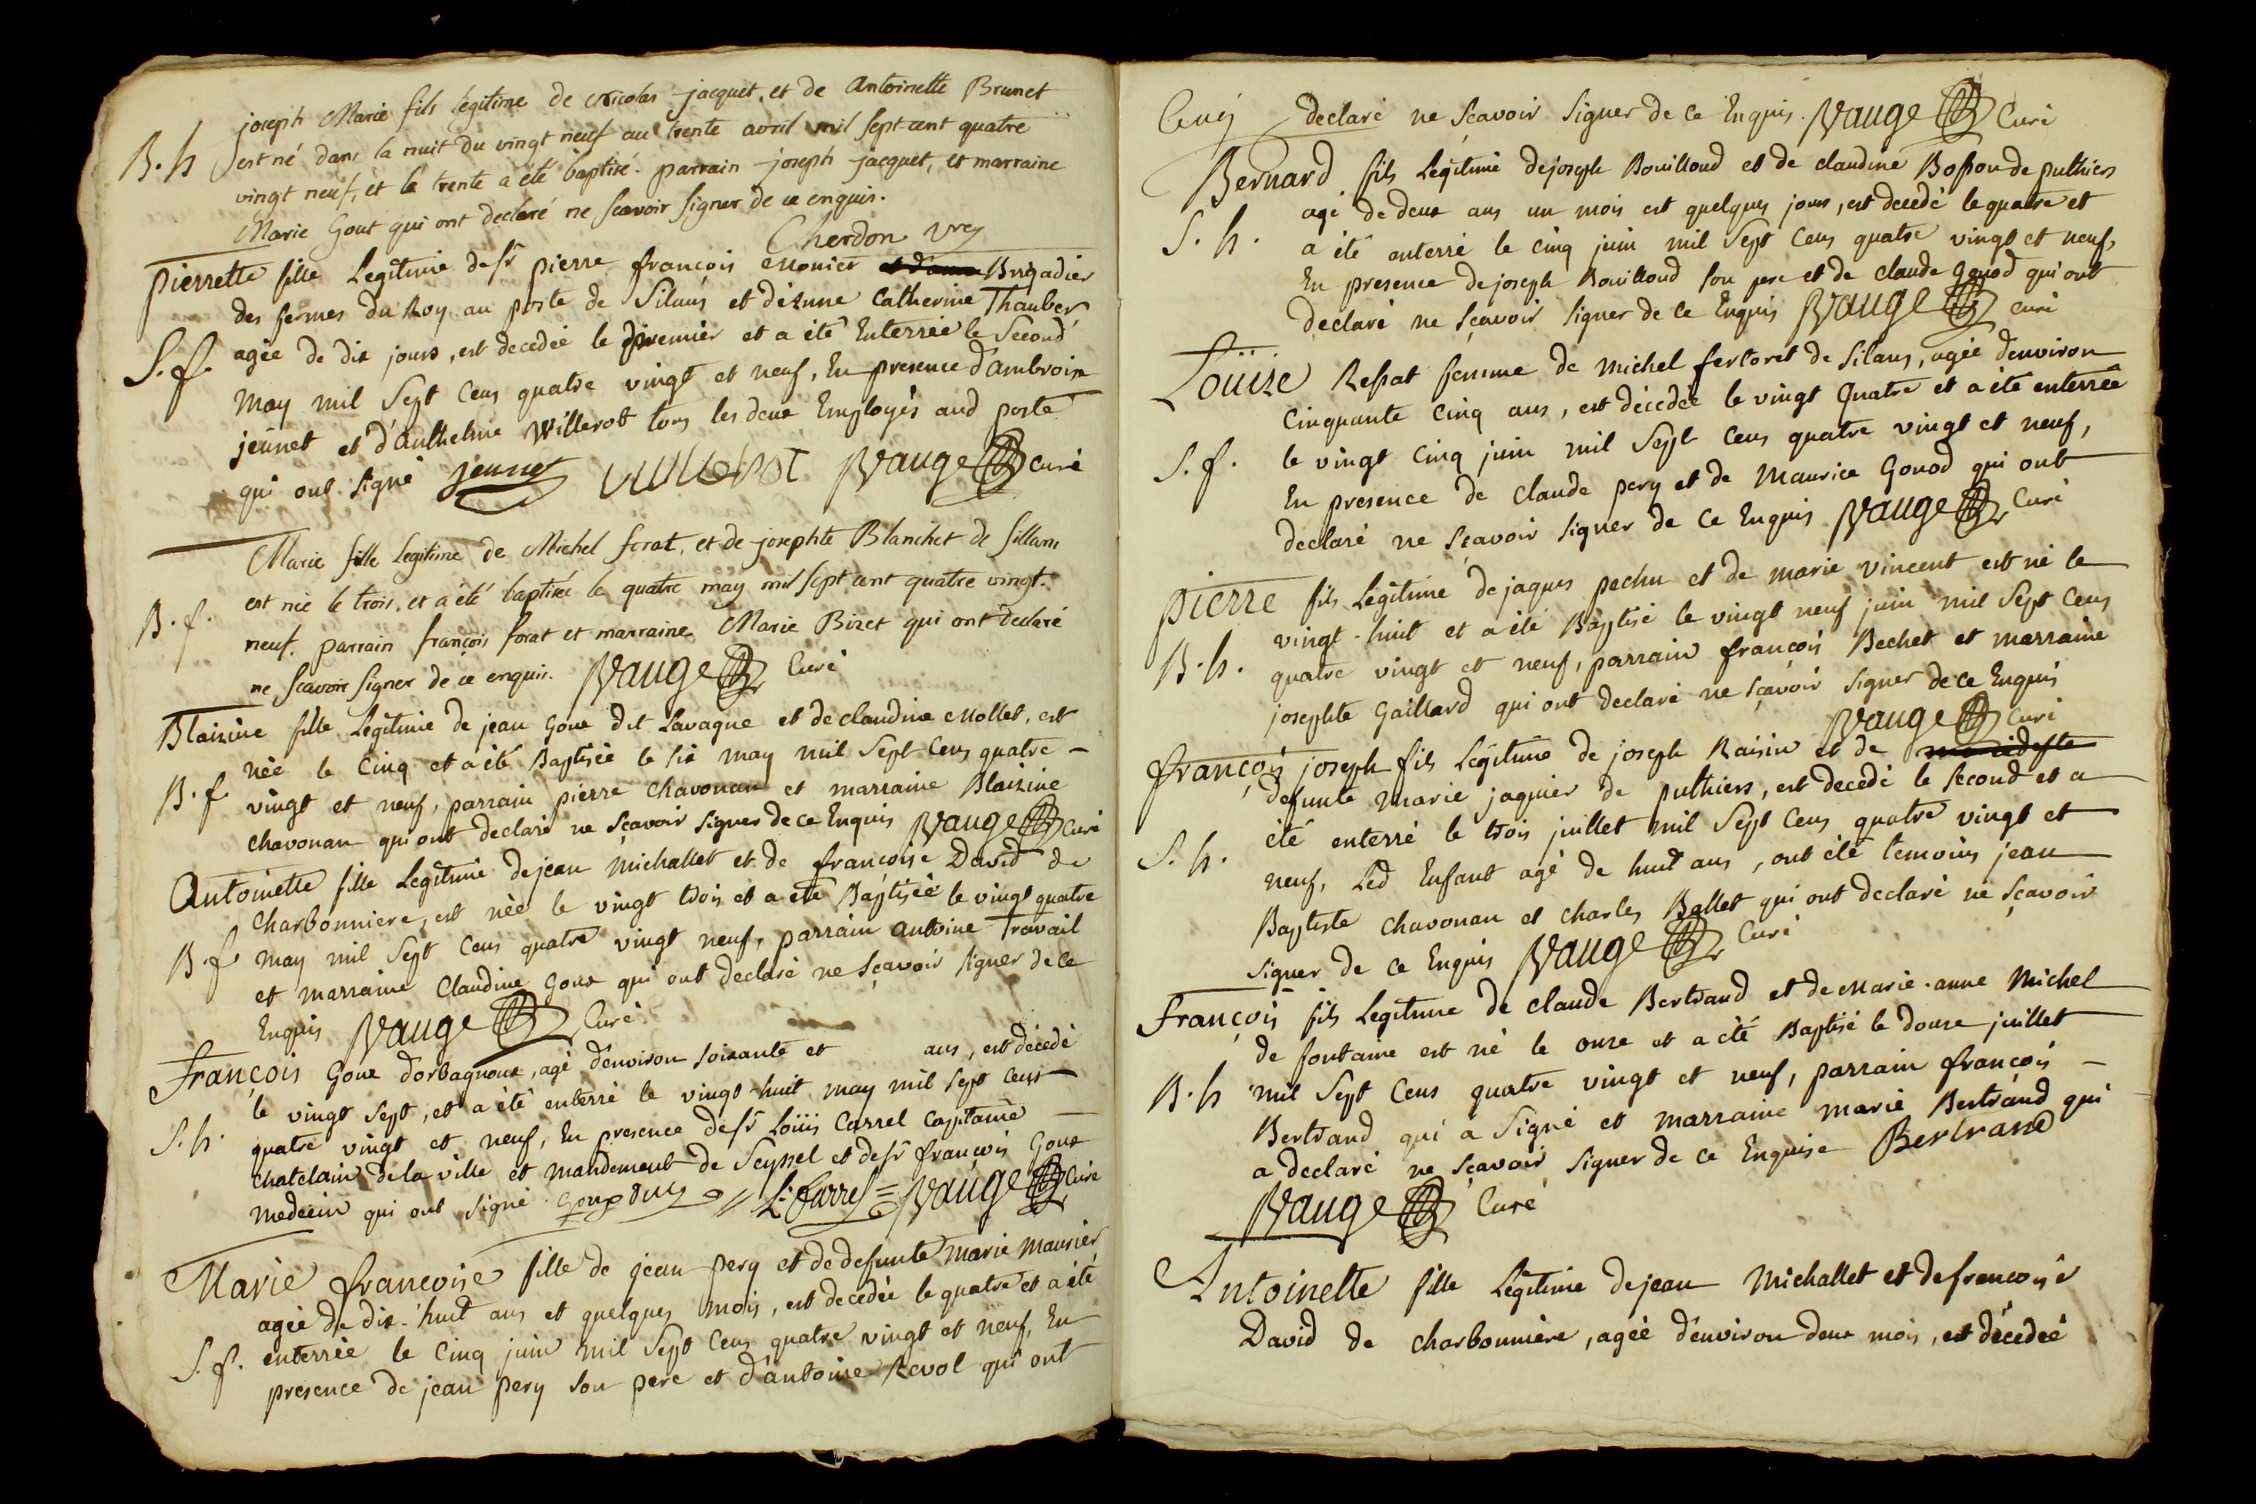 joseph Marie fils legitime de Nicolas jacquet, et de Antoinette Brunet
B. h est né dans la nuit du vingt neuf au trente avril mil sept cent quatre
vingt neuf, et le trente a été baptisé. parrain joseph jacquet, et marraine
Marie Goux qui ont declaré ne scavoir signer de ce enquis.
Cherdon vre
pierrette fille Legitime de sr pierre françois Monier Brigadier
des fermes du Roy au poste de Silans et d'Anne Catherine Thauber
S. f. agée de dix jours, est decedée le premier et a été Enterrée le Second
May mil Sept Cens quatre vingt et neuf, En presence d'ambroise
jeunet et d'Anthelme Willerot tous les deux Employés aud poste
qui ont signé jeunet Willerot Vauge Curé
Marie fille legitime de Michel forat, et de josephte Blanchet de sillans
B. f. est née le trois, et a été baptisée le quatre may mil sept cent quatre vingt.
neuf. parrain françois forat et marraine Marie Bizet qui ont declaré
ne scavoir signer de ce enquis. Vauge Curé
Blaizine fille Legitime de jean Goux dit Lavague et de claudine Mollet, est
née le Cinq et a été Baptisée le Six may mil Sept Cens quatre -
B. f vingt et neuf, parrain pierre Chavonan et marraine Blaizine
Chavonan qui ont declaré ne Sçavoir signer de ce Enquis Vauge Curé
Antoinette fille Legitime de jean Michallet et de françoise David de
Charbonniere, est née le vingt trois et a été Baptisée le vingt quatre
B. f may mil Sept Cens quatre vingt neuf, parrain antoine Travail
et marraine Claudine Goux qui ont declaré ne Sçavoir signer de ce
Enquis Vauge Curé
François Goux d'orbagnoux, agé d'environ soixante et ans, est décedé
le vingt Sept, et a été enterré le vingt-huit may mil Sept Cens
S. h. quatre vingt et neuf, En presence de sr Loüis Carrel Capitaine
Chatelain de la ville et mandement de Seyssel et de sr françois Goux
medecin qui ont signé Goux L. Carrel Vauge Curé
Marie françoise fille de jean pery et de defunte marie maurier
agée de dix-huit ans et quelques mois, est decedée le quatre et a été
S. f. enterrée le Cinq juin mil Sept Cens quatre vingt et neuf, En
presence de jean pery son pere et d'antoine Revol qui ont
declaré ne Sçavoir Signer de ce Enquis. Vauge Curé
Bernard fils Legitime de joseph Bouilloud et de claudine Bosson de puthiers
S. h. agé de deux ans un mois et quelques jours, est decedé le quatre et
a été enterré le cinq juin mil Sept Cens quatre vingt et neuf,
En presence de joseph Bouilloud son pere et de claude Gonod qui ont
declaré ne Sçavoir signer de ce Enquis Vauge curé
Loüize Ressat femme de michel fertoret de Silans, agée d'environ
Cinquante Cinq ans, est décedée le vingt Quatre et a été enterrée
S. f. le vingt Cinq juin mil Sept Cens quatre vingt et neuf,
En presence de Claude pery et de Maurice Gonod qui ont
declaré ne Sçavoir signer de ce Enquis Vauge Curé
pierre fils Legitime de jaques pechu et de marie vincent est né le
vingt-huit et a été Baptisé le vingt neuf juin mil Sept Cens
B. h. quatre vingt et neuf, parrain françois Bechet et marraine
josephte Gaillard qui ont declaré ne sçavoir signer de ce Enquis
Vauge Curé
françois joseph fils Legitime de joseph Raisin et de
defunte Marie jaquier de puthiers, est decedé le Second et a
S. h. été enterré le trois juillet mil Sept Cens quatre vingt et
neuf, Led Enfant agé de huit ans, ont été temoins jean
Baptiste Chavonan et charles Ballet qui ont declaré ne Sçavoir
signer de ce Enquis Vauge Curé
François fils Legitime de claude Bertrand et de Marie-anne Michel
de fontaine est né le onze et a été Baptisé le douze juillet
B. h mil Sept Cens quatre vingt et neuf, parrain françois -
Bertrand qui a Signé et marraine marie Bertrand qui
a declaré ne Sçavoir signer de ce Enquise Bertrand
Vauge Curé
Antoinette fille Legitime de jean Michallet et de françoise
David de charbonniere, agée d'environ deux mois, est décedée